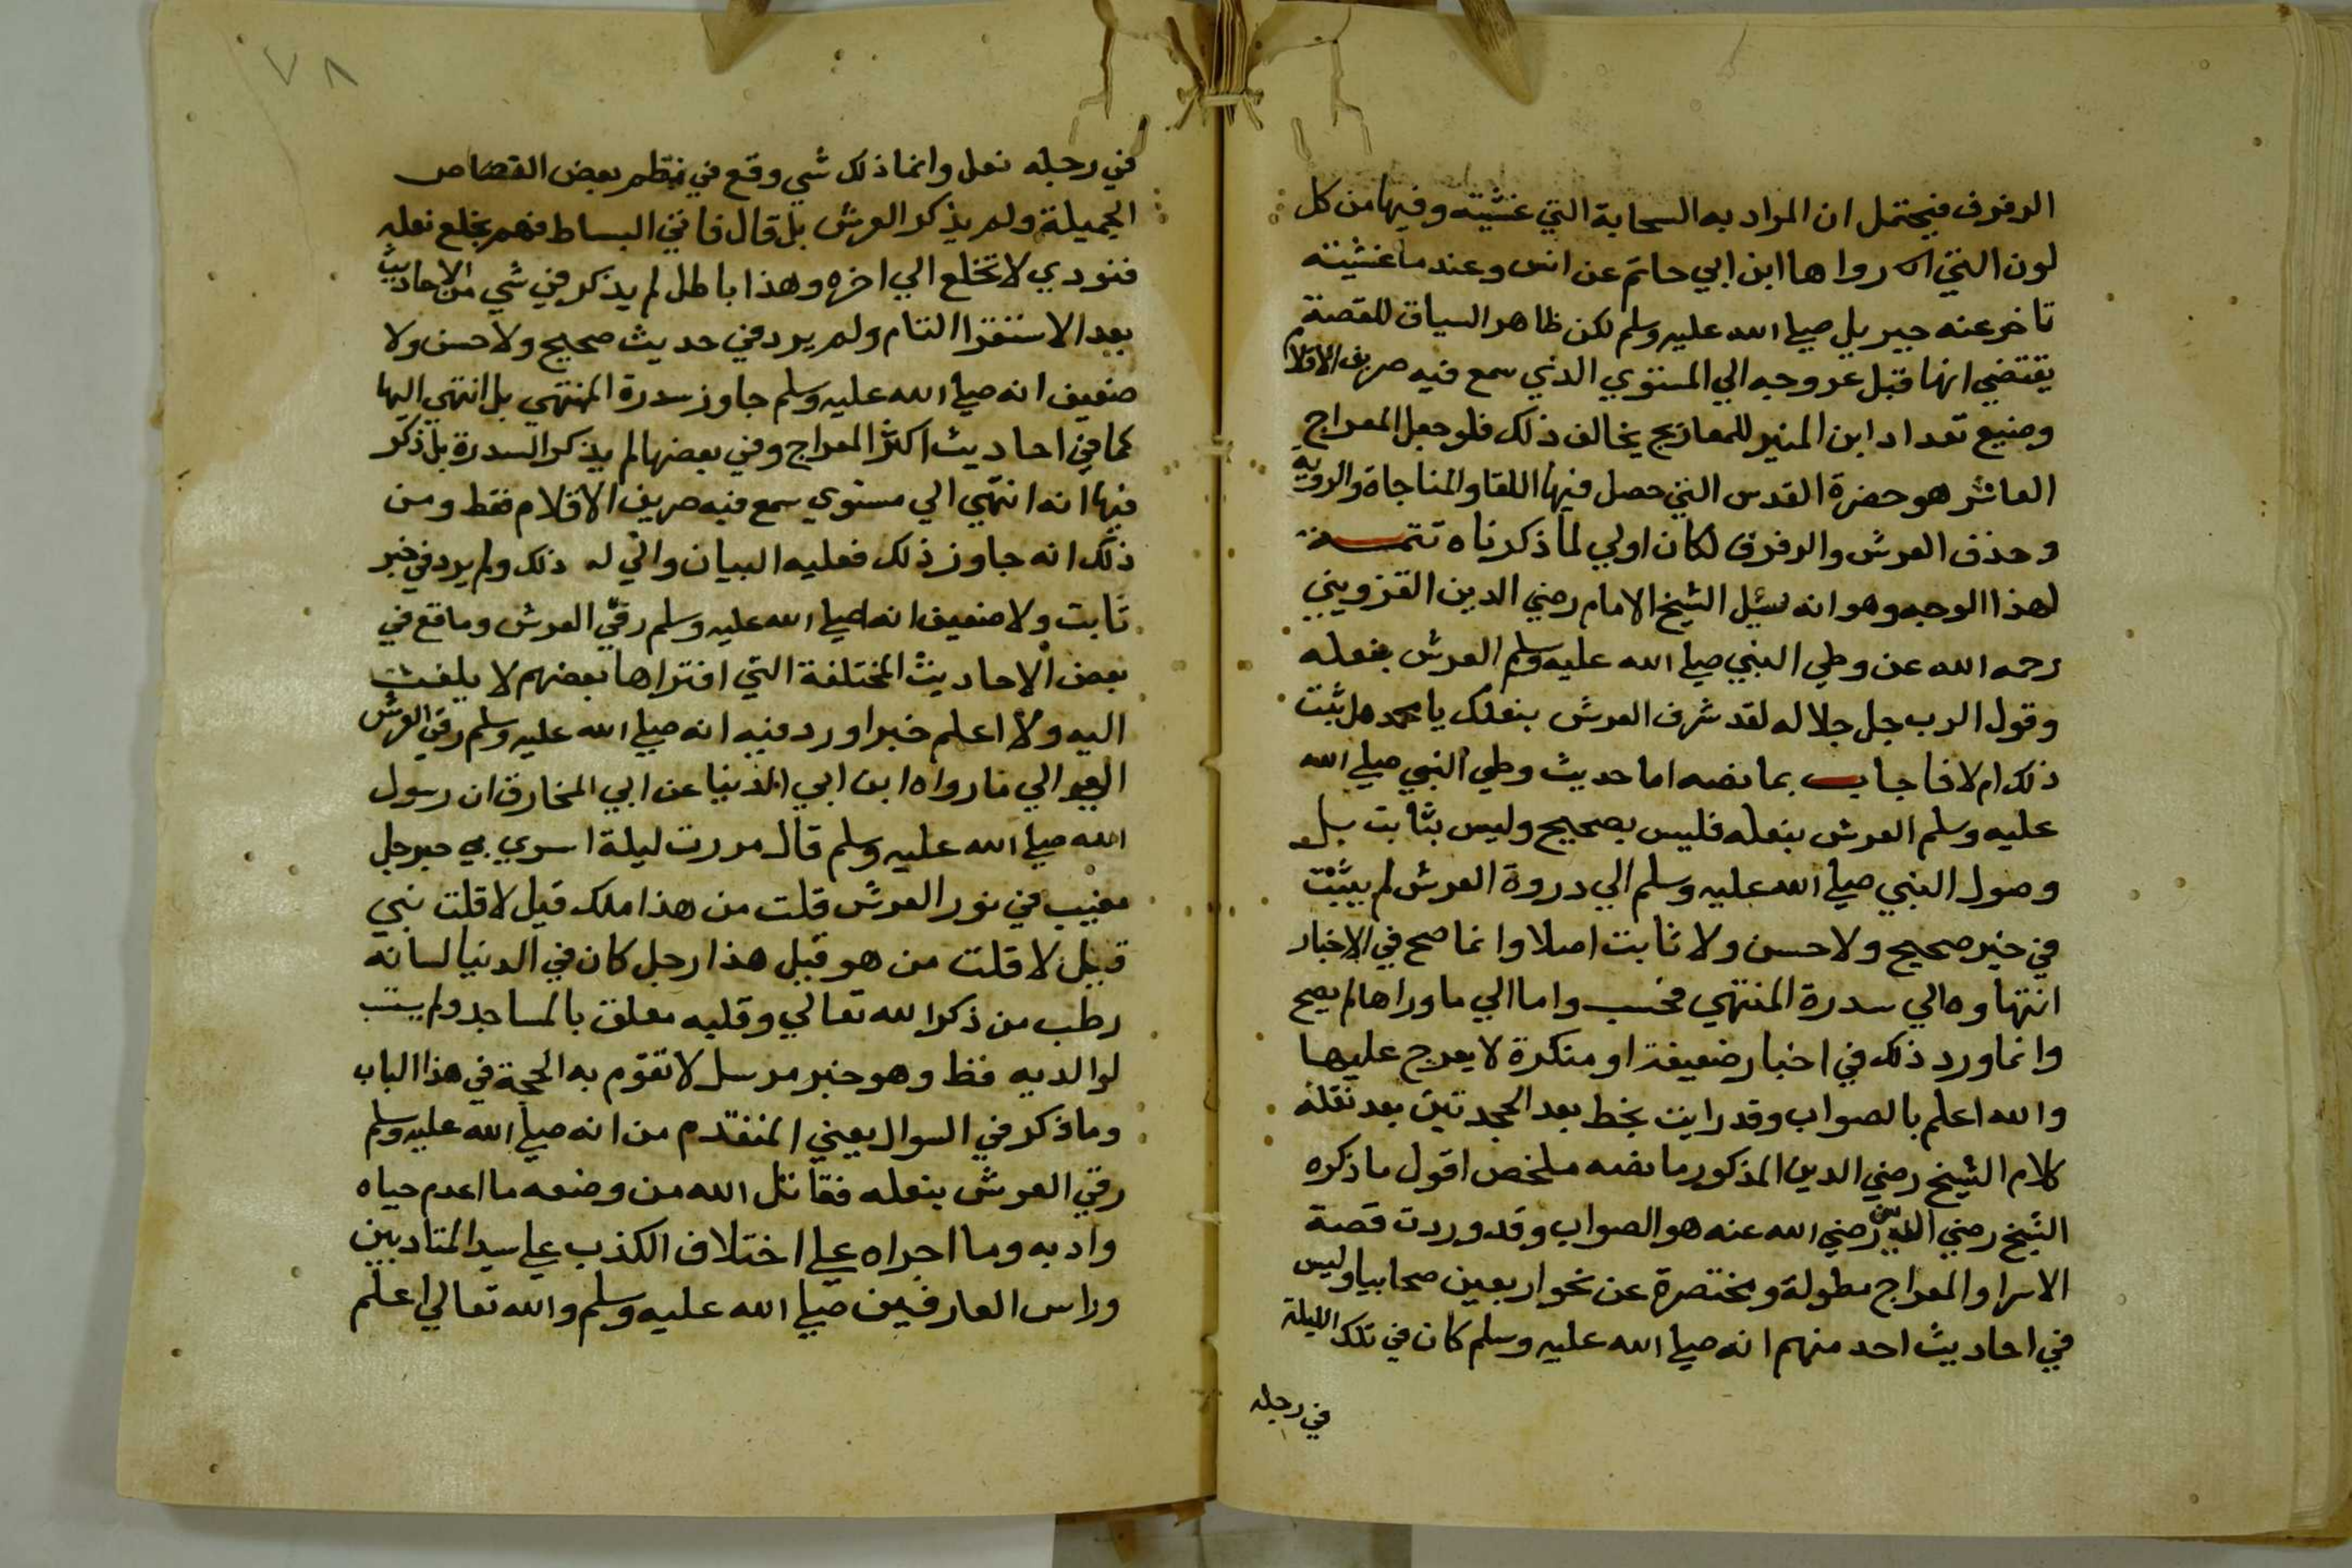 الرفرف فيحتمل ان المراد به السحابة التي غشيته وفيها من كل
لون التي رواها ابن ابي حاتم عن انس وعند ما غشيته
تاخر عنه جبريل صلي الله عليه وسلم لكن ظاهر السياق للقصة
يقتضي انها قبل عروجه الي المستوي الذي سمع فيه صريف الاقلام
وصنيع تعداد ابن المنير للمعاريج يخالف ذلك فلو جعل المعراج
العاشر هو حضرة القدس التي حصل فيها اللقا والمناجاة والرويه
وحذف العرش والرفرف لكان اولي لما ذكرناه تتمسة
لهذا الوجه وهو انه سئيل الشيخ الامام رضي الدين القزويني
رحمه الله عن وطي النبي صلي الله عليه وسلم العرش بنعله
وقول الرب جل جلاله لقد شرف العرش بنعلك يا محمد هل ثبت
ذلك ام لا فاجاب بما نصه اما حديث وطي النبي صلي الله
عليه وسلم العرش بنعله فليس بصحيح وليس بثابت بل
وصول النبي صلي الله عليه وسلم الي دروة العرش لم يثبت
في خبر صحيح ولا حسن ولا ثابت اصلا وانما صح في الاخبار
انتهاوه الي سدرة المنتهي فحسب واما الي ما وراها لم يصح
وانما ورد ذلك في اخبار ضعيفة او منكرة لا يعرج عليها
والله اعلم بالصواب وقد رايت بخط بعد المحدثين بعد نقله
كلام الشيخ رضي الدين المذكور ما نصه ملخص اقول ما ذكره
الشيخ رضي الدين رضي الله عنه هو الصواب وقد وردت قصة
الاسرا والمعراج مطولة ومختصرة عن نحو اربعين صحابيا وليس
في احاديث احد منهم انه صلي الله عليه وسلم كان في تلك الليلة
في رجله
٧٨
في رجله نعل وانما ذلك شي وقع في نظم بعض القصاص
الجميلة ولم يذكر العرش بل قال فاتي البساط فهم بخلع نعله
فنودي لا تخلع الي اخره وهذا باطل لم يذكر في شي من الاحاديث
بعد الاستقرا التام ولم يرد في حديث صحيح ولا حسن ولا
ضعيف انه صلي الله عليه وسلم جاوز سدرة المنتهي بل انتهي اليها
كما في احاديث اكثر المعراج وفي بعضها لم يذكر السدرة بل ذكر
فيها انه انتهي الي مستوي سمع فيه صريف الاقلام فقط ومن
ذكر انه جاوز ذلك فعليه البيان واني له ذلك ولم يرد في خبر
ثابت ولا ضعيف انه صلي الله عليه وسلم رقي العرش وما قع في
بعض الاحاديث المختلفة التي افتراها بعضهم لا يلفت
اليه ولا اعلم خبرا ورد فيه انه صلي الله عليه وسلم رقي العرش
الي ما رواه ابن ابي الدنيا عن ابي المخارق ان رسول
الله صلي الله عليه وسلم قال مررت ليلة اسري بي برجل
مغيب في نور العرش قلت من هذا ملك قيل لا قلت نبي
قيل لا قلت من هو قيل هذا رجل كان في الدنيا لسانه
رطب من ذكر الله تعالي وقلبه معلق بالمساجد ولم يستب
لوالديه قط وهو خبر مرسل لا تقوم به الحجة في هذا الباب
وما ذكر في السوال يعني المتقدم من انه صلي الله عليه وسلم
رقي العرش بنعله فقاتل الله من وضعه ما اعدم حياه
وادبه وما اجراه علي اختلاف الكذب علي سيد المتادبين
وراس العارفين صلي الله عليه وسلم والله تعالي اعلم